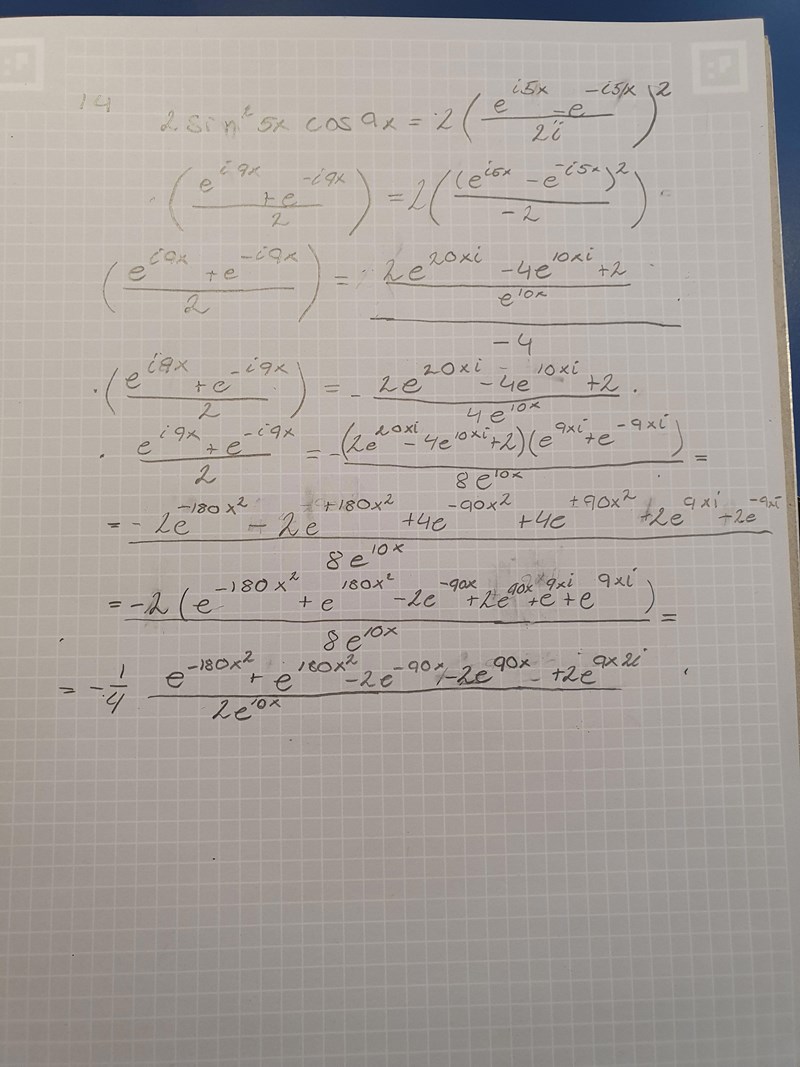 14
2 sin² 5x cos 9x = 2 ( (e^{i5x} - e^{-i5x}) / 2i )²
· ( (e^{i9x} + e^{-i9x}) / 2 ) = 2 ( (e^{i5x} - e^{-i5x})² / -2 ) ·
( (e^{i9x} + e^{-i9x}) / 2 ) = ( (2e^{20xi} - 4e^{10xi} + 2) / e^{10x} ) / -4 ·
· ( (e^{i9x} + e^{-i9x}) / 2 ) = - (2e^{20xi} - 4e^{10xi} + 2) / 4e^{10x} ·
· (e^{i9x} + e^{-i9x}) / 2 = - (2e^{20xi} - 4e^{10xi} + 2)(e^{9xi} + e^{-9xi}) / 8e^{10x} =
= (- 2e^{-180x²} - 2e^{+180x²} + 4e^{-90x²} + 4e^{+90x²} + 2e^{9xi} + 2e^{-9xi}) / 8e^{10x}
= -2 (e^{-180x²} + e^{180x²} - 2e^{-90x} + 2e^{90x} + e^{9xi} + e^{9xi}) / 8e^{10x} =
= - 1/4 (e^{-180x²} + e^{180x²} - 2e^{-90x} - 2e^{90x} - + 2e^{9x2i}) / 2e^{10x}